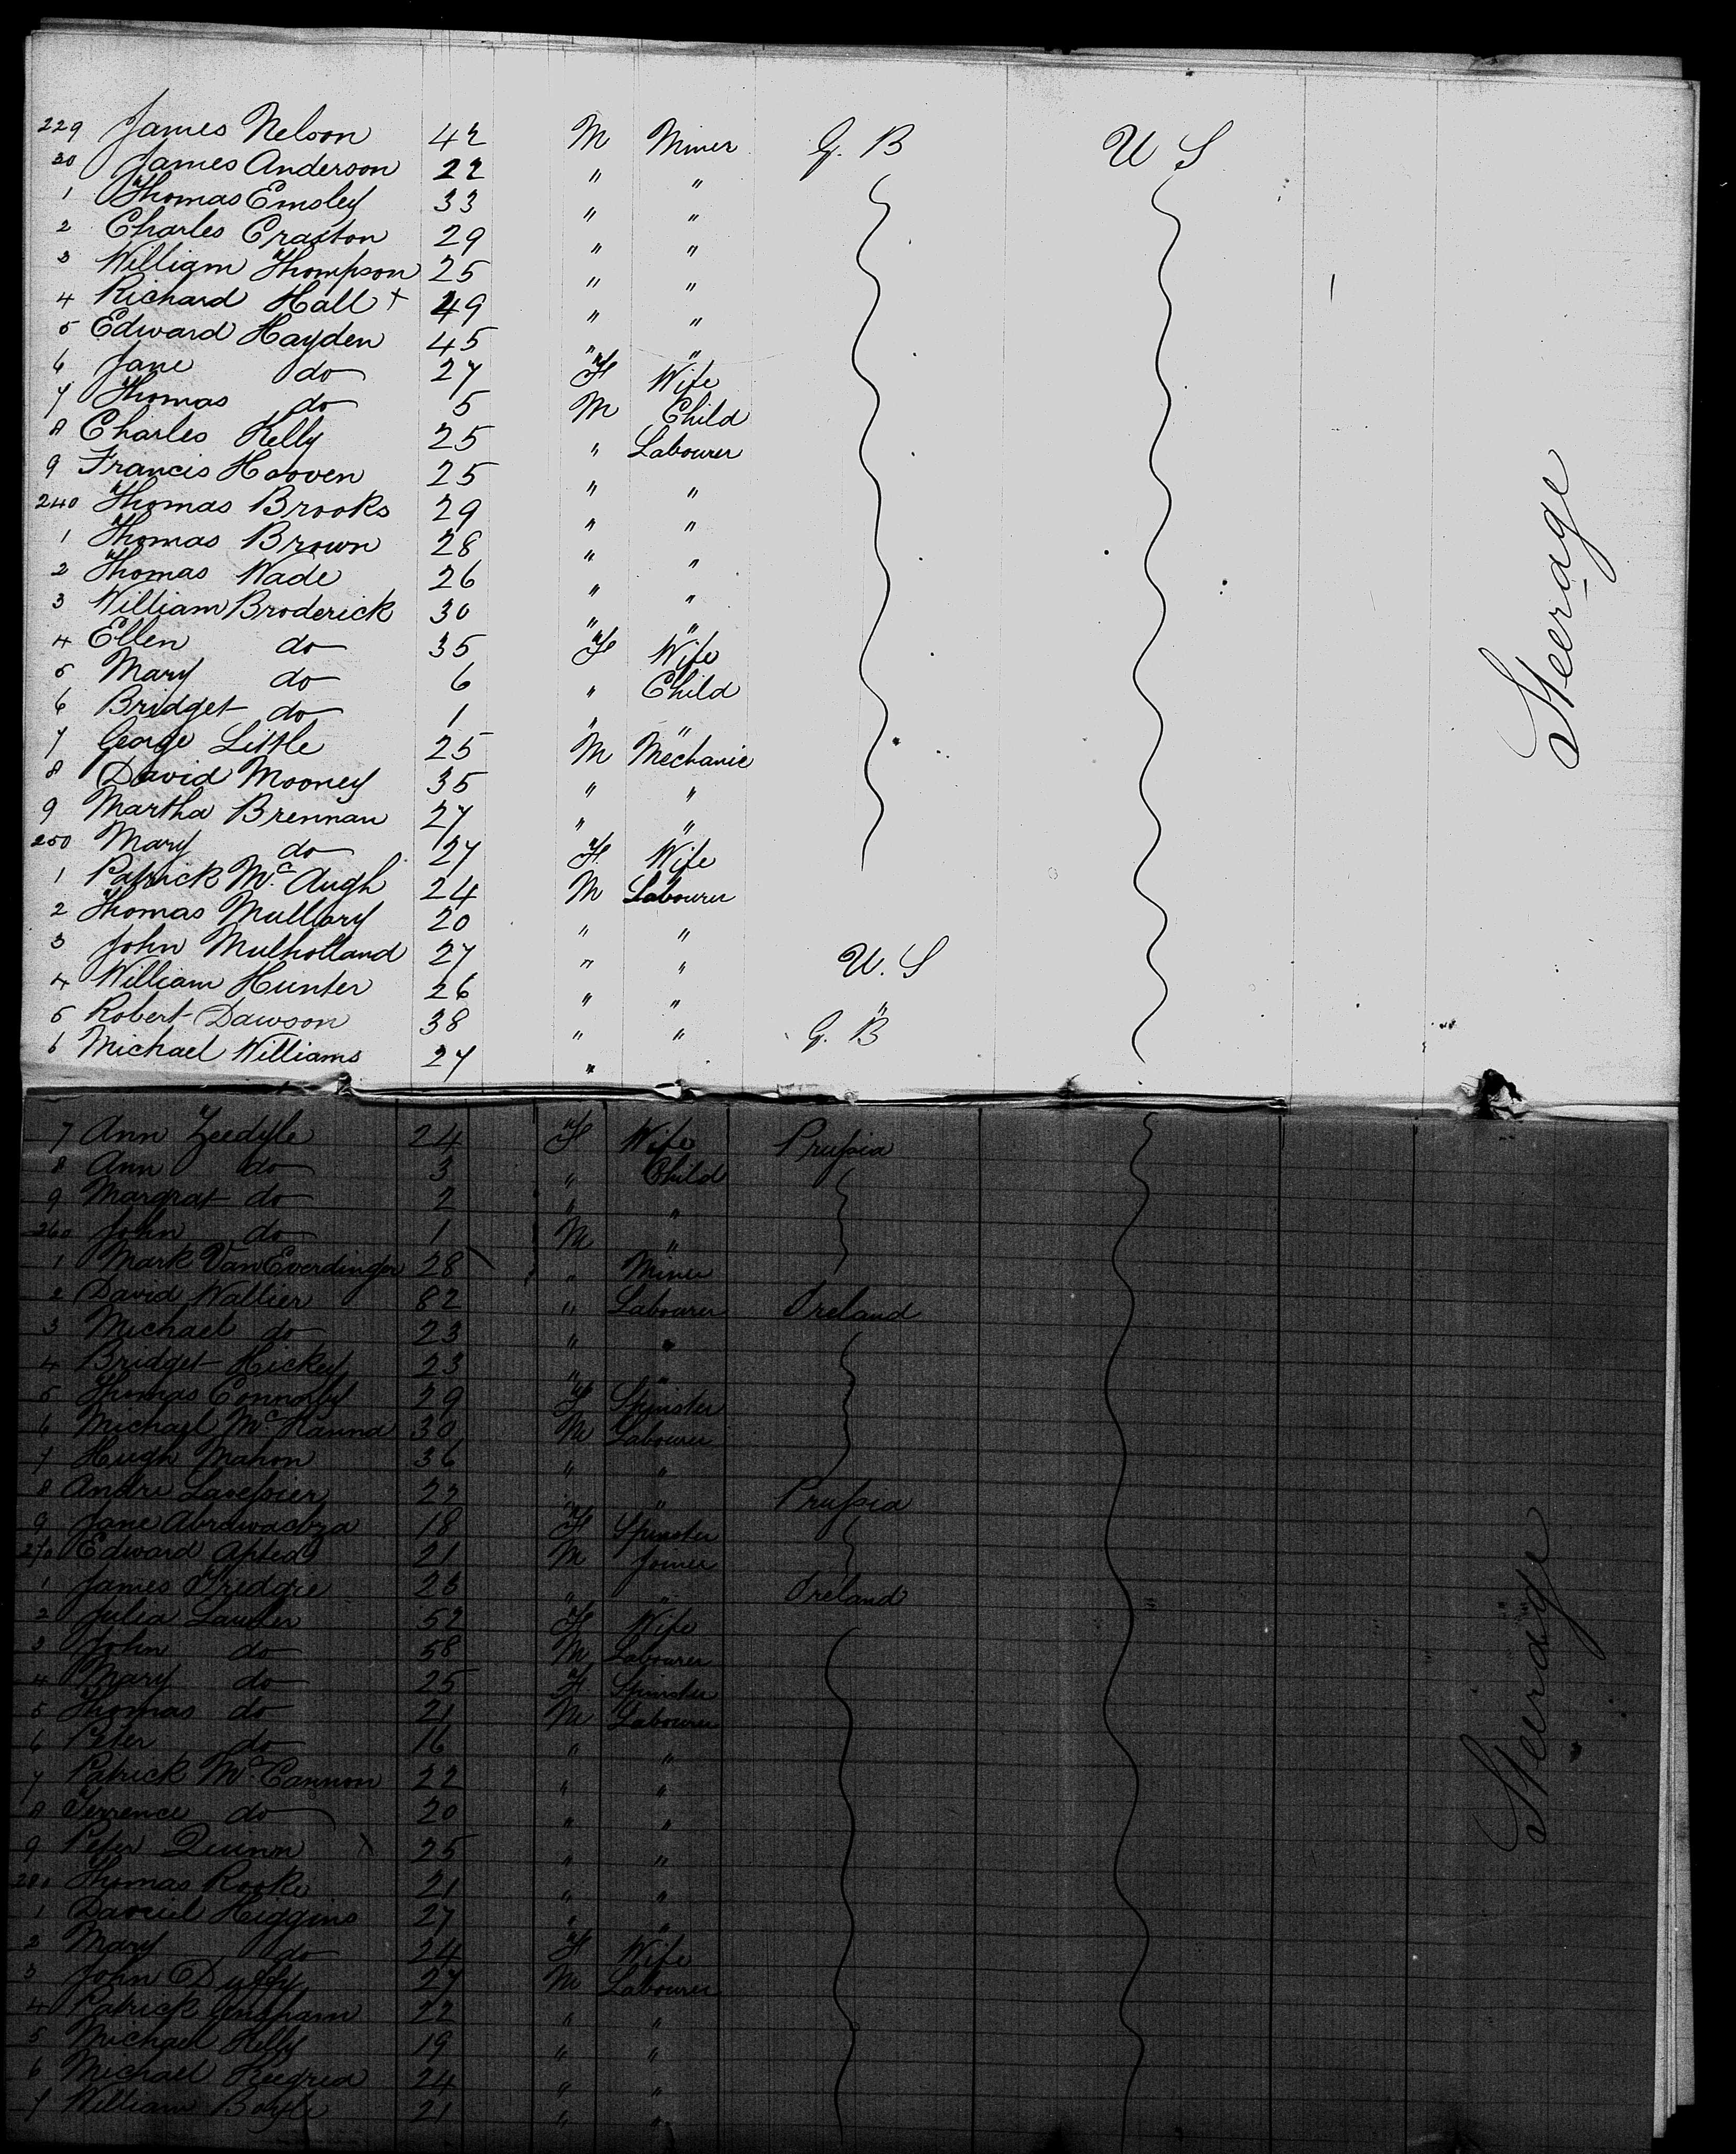 229 James Nelson 42 M Miner G. B U S
30 James Anderson 22 " "
1 Thomas Emsley 33 " "
2 Charles Craxton 29 " "
3 William Thompson 25 " "
4 Richard Hall + 49 " "
5 Edward Hayden 45 " "
6 Jane do 27 F Wife
7 Thomas do 5 M Child
8 Charles Kelly 25 " Labourer
9 Francis Hooven 25 " "
240 Thomas Brooks 29 " "
1 Thomas Brown 28 " "
2 Thomas Wade 26 " "
3 William Broderick 30 " "
4 Ellen do 35 F Wife
5 Mary do 6 " Child
6 Bridget do 1 " "
7 George Little 25 M Mechanic
8 David Mooney 35 " "
9 Martha Brennan 27 " "
250 Mary do 27 F. Wife
1 Patrick Mc Augh 24 M Labourer
2 Thomas Mullary 20 " "
3 John Mulholland 27 " " U. S
4 William Hunter 26 " " "
5 Robert Dawson 38 " " G. B
6 Michael Williams 27 "
Steerage
7 Ann Zeedyle 24 F Wife Prussia
8 Ann do 3 " Child
9 Margrat do 2 " "
260 John do 1 M "
1 Mark Van Everdingen 28 " Miner
2 David Wallier 82 " Labourer Ireland
3 Michael do 23 " "
4 Bridget Hickey 23 " "
5 Thomas Connolly 29 F Spinster
6 Michael Mc Hanna 30 M Labourer
7 Hugh Mahon 36 " "
8 Andre Lavessier 22 " " Prussia
9 Jane 18 F Spinster
270 Edward Apted 21 M Joiner
1 James 26 " " Ireland
2 Julia Lawler 52 F Wife
3 John do 58 M Labourer
4 Mary do 25 F Spinster
5 Thomas do 21 M Labourer
6 Peter do 16 " "
7 Patrick Mc Cannon 22 " "
8 Terrence do 20 " "
9 Peter Quinn x 25 " "
280 Thomas Rooke 21 " "
1 Daniel Higgins 27 " "
2 Mary do 24 F Wife
3 John Duffy 27 M Labourer
4 Patrick 22 " "
5 Michael Kelly 19 " "
6 Michael 24 " "
7 William Boyle 21 " "
Steerage